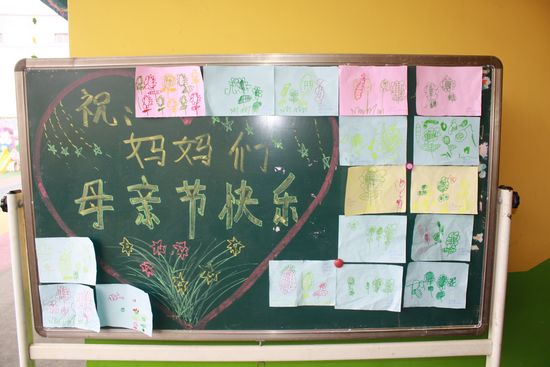 祝、
妈妈们
母亲节快乐